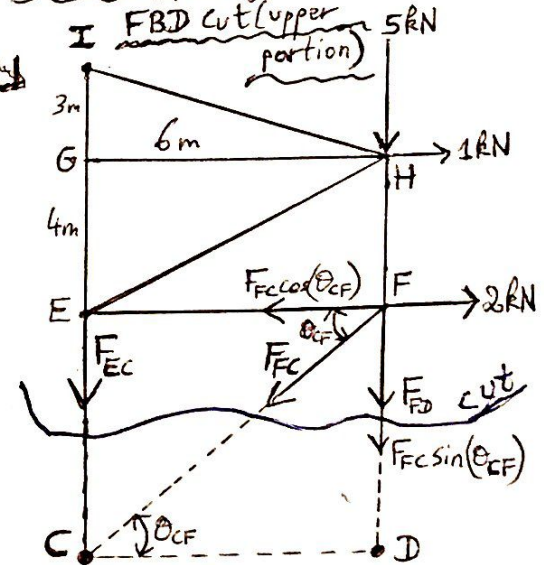 FBD cut (upper
portion)
I
5kN
3m
G
6m
1kN
H
4m
F_FC cos(θ_CF)
F
E
2kN
θ_CF
F_EC
F_FC
F_FD
cut
F_FC sin(θ_CF)
θ_CF
C
D